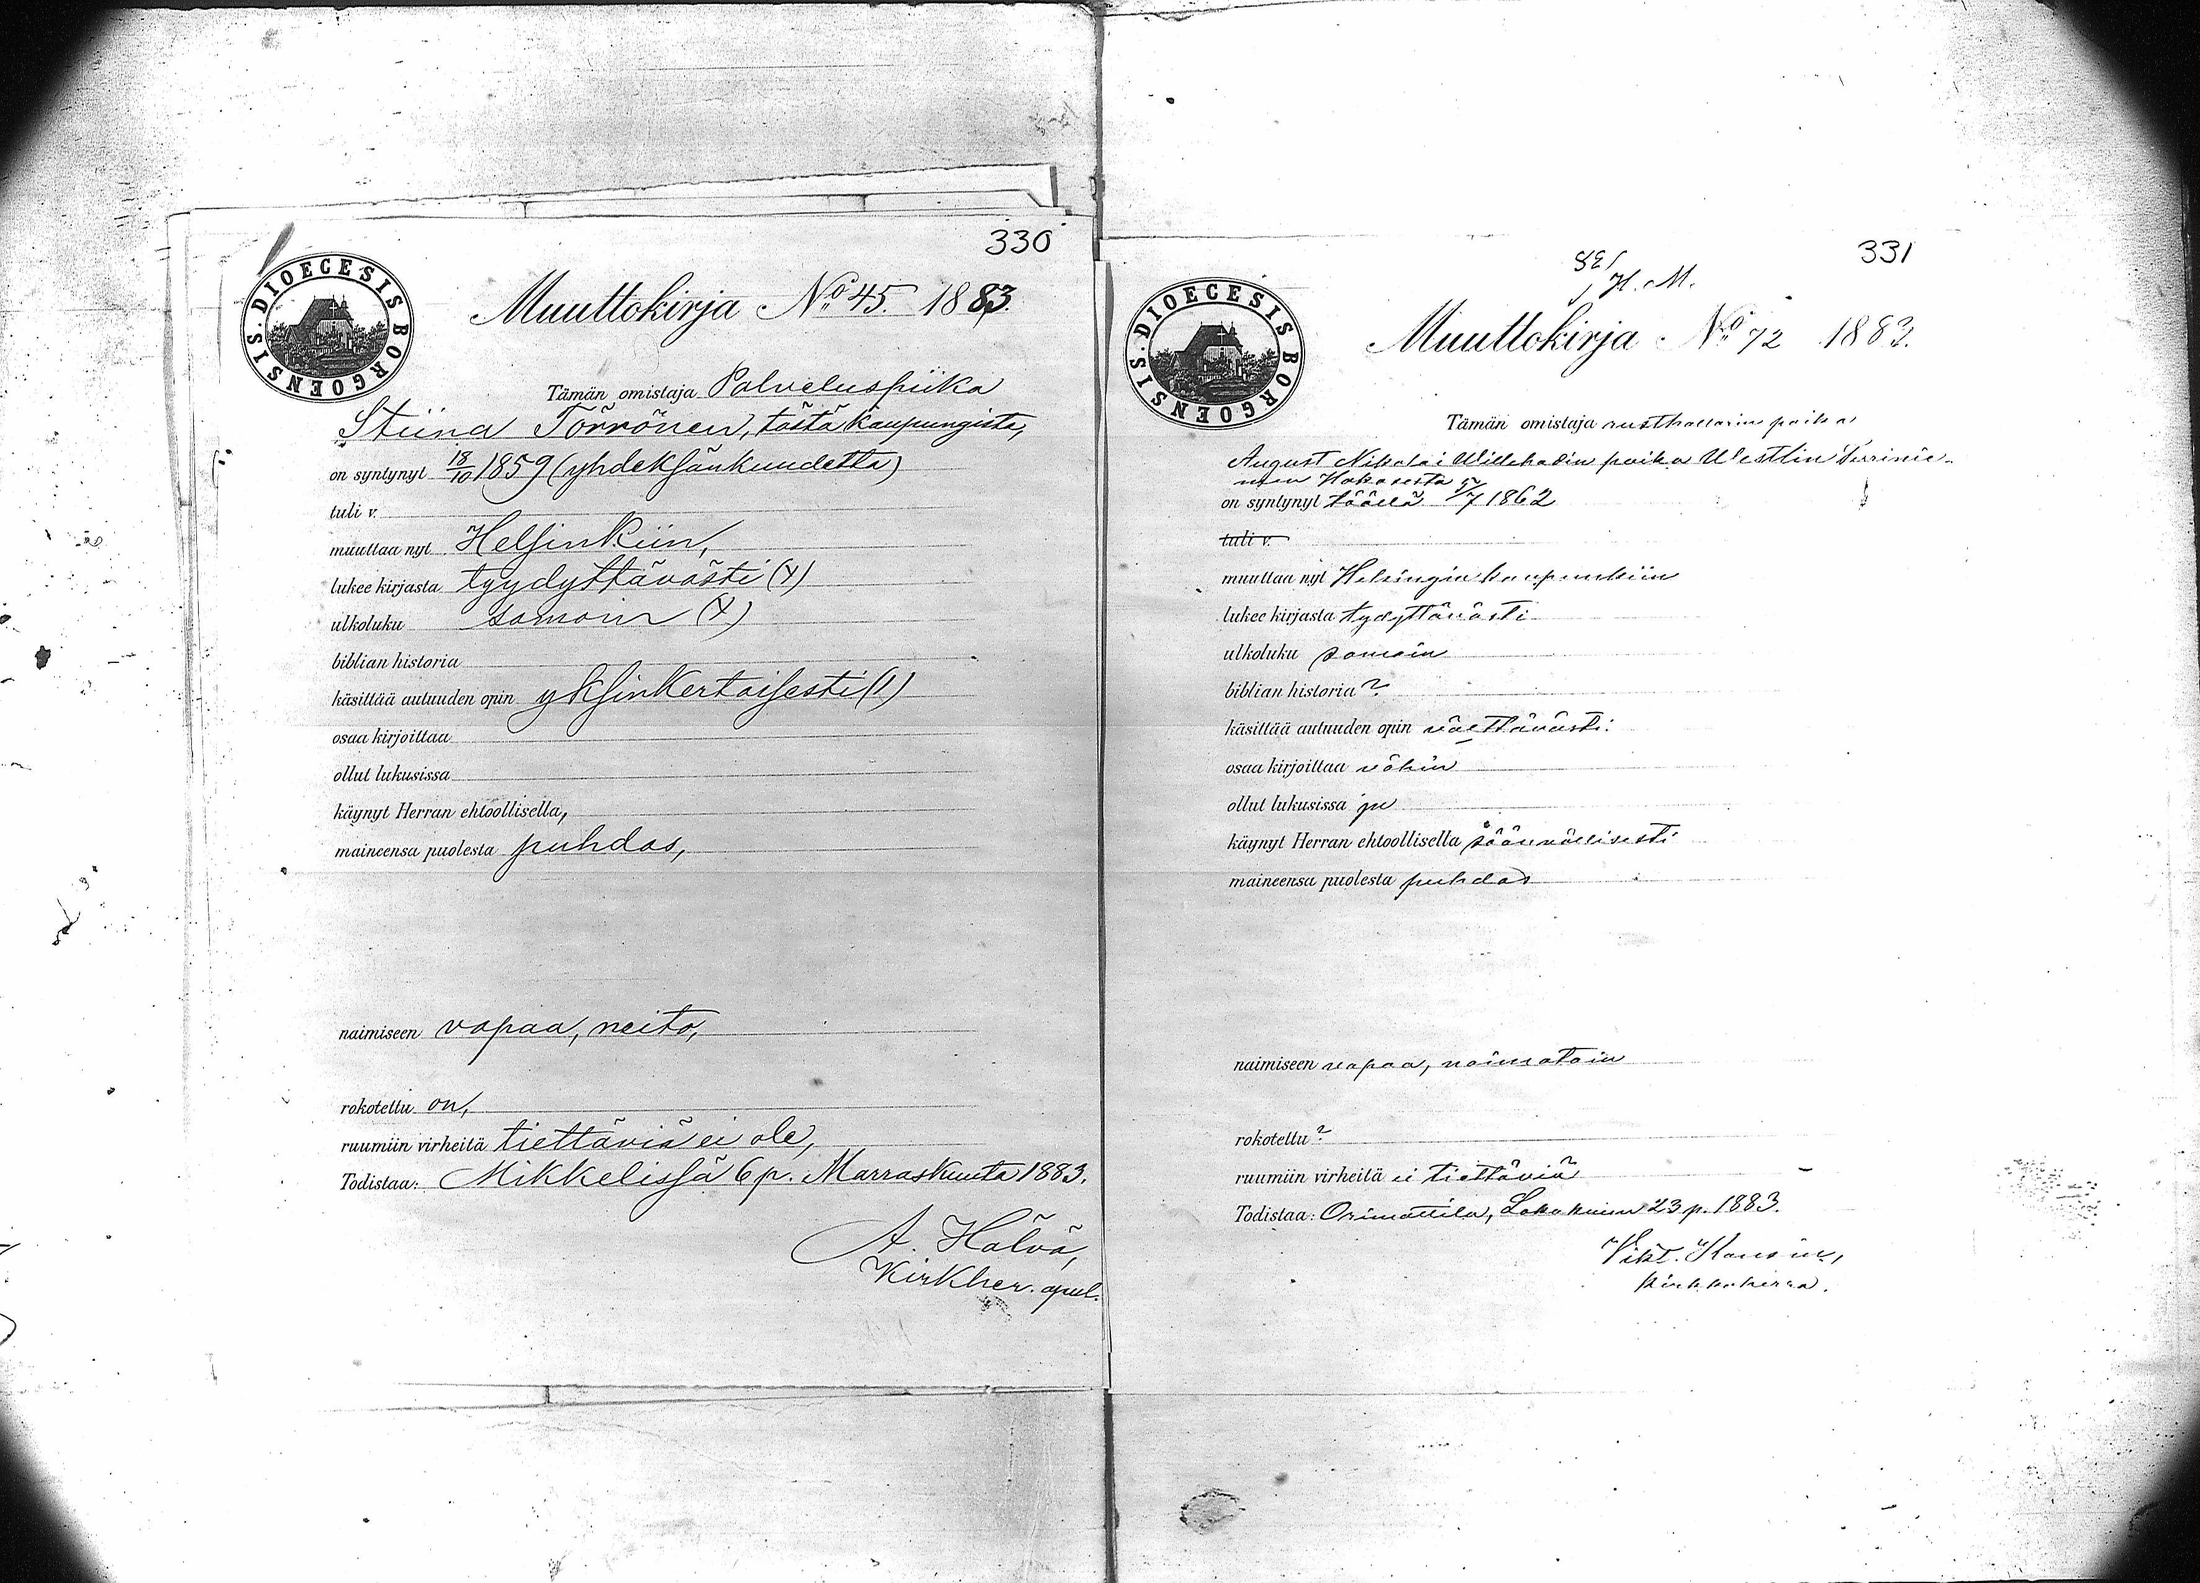 330
DIOECESIS BORGOENSIS.
Muuttokirja No 45. 1883.
Tämän omistaja Palveluspiika
Stiina Törrönen, tästä kaupungista,
on syntynyt 18/10 1859 (yhdeksänkuudetta)
tuli v.
muuttaa nyt Helsinkiin,
lukee kirjasta tyydyttävästi (Y)
ulkoluku samoin (Y)
biblian historia
käsittää autuuden opin yksinkertaisesti (1)
osaa kirjoittaa
ollut lukusissa
käynyt Herran ehtoollisella,
maineensa puolesta puhdas,
naimiseen vapaa, neito,
rokotettu on,
ruumiin virheitä tiettäviä ei ole,
Todistaa: Mikkelissä 6 p. Marraskuuta 1883.
A. Hälvä,
Kirkher. apul.
331
H. M.
DIOECESIS BORGOENSIS.
Muuttokirja No 72 1883.
Tämän omistaja rusthollarin poika
August Nikolai Willehadin poika Westlin
on syntynyt täällä 5/7 1862
tuli v.
muuttaa nyt Helsingin kaupunkiin
lukee kirjasta tydyttävästi
ulkoluku samoin
biblian historia ?
käsittää autuuden opin välttävästi
osaa kirjoittaa vähin
ollut lukusissa on
käynyt Herran ehtoollisella säännöllisesti
maineensa puolesta puhdas
naimiseen vapaa, naimatoin
rokotettu ?
ruumiin virheitä ei tiettäviä
Todistaa: Orimattila, Lokakuun 23 p. 1883.
Vikt.
kirkkoherra.